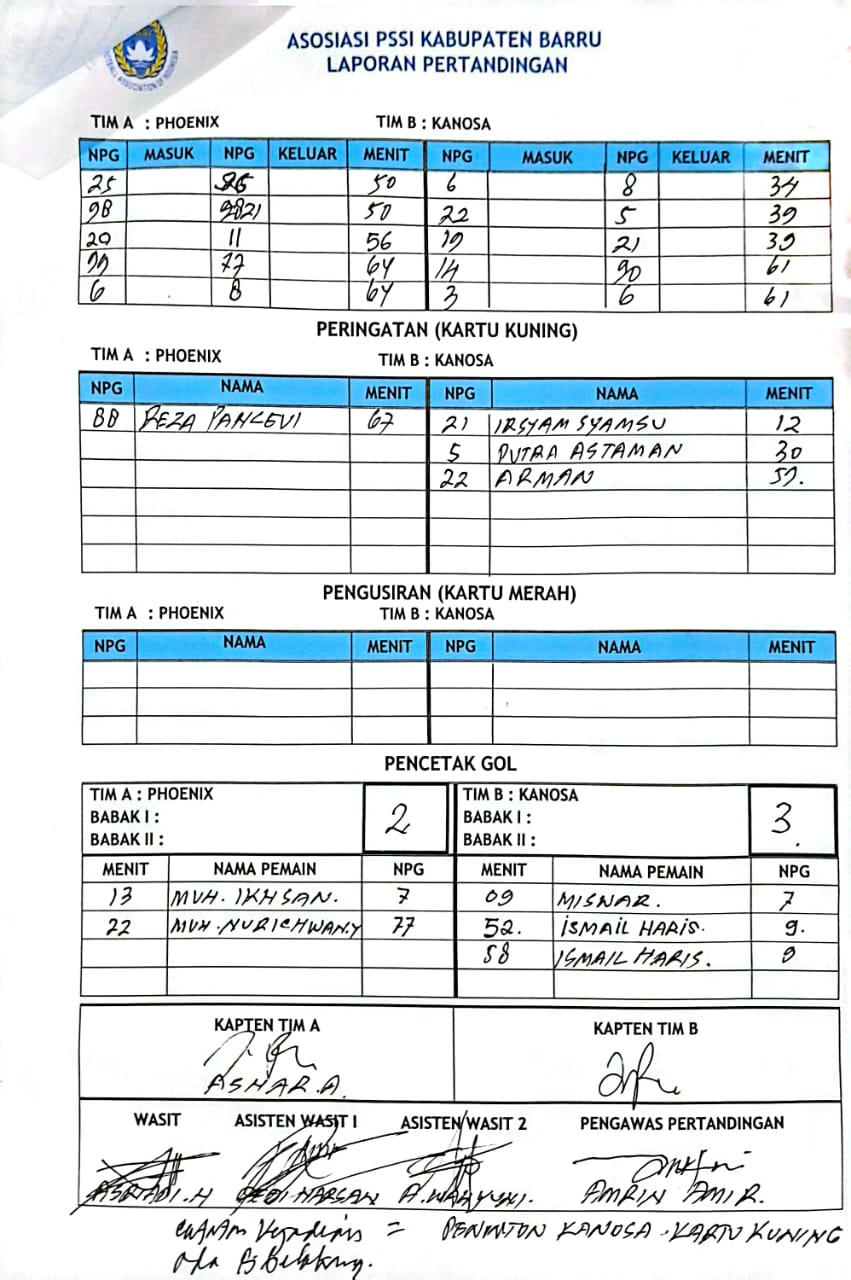 ASOSIASI PSSI KABUPATEN BARRU
LAPORAN PERTANDINGAN
TIM A : PHOENIX TIM B : KANOSA
NPG MASUK NPG KELUAR MENIT NPG MASUK NPG KELUAR MENIT
25 50 6 8 34
98 21 50 22 5 39
29 11 56 19 21 39
99 77 64 14 90 61
6 8 64 3 6 61
PERINGATAN (KARTU KUNING)
TIM A : PHOENIX TIM B : KANOSA
NPG NAMA MENIT NPG NAMA MENIT
88 REZA PAHLEVI 67 21 IRSYAM SYAMSU 12
5 PUTRA ASTAMAN 30
22 ARMAN
PENGUSIRAN (KARTU MERAH)
TIM A : PHOENIX TIM B : KANOSA
NPG NAMA MENIT NPG NAMA MENIT
PENCETAK GOL
TIM A : PHOENIX 2 TIM B : KANOSA 3.
BABAK I : BABAK I :
BABAK II : BABAK II :
MENIT NAMA PEMAIN NPG MENIT NAMA PEMAIN NPG
13 MUH. IKHSAN. 7 09 MISNAR. 7
22 MUH. NURICHWAN.Y 77 52. ISMAIL HARIS. 9.
58 ISMAIL HARIS. 9
KAPTEN TIM A KAPTEN TIM B
ASHAR.A.
WASIT ASISTEN WASIT 1 ASISTEN WASIT 2 PENGAWAS PERTANDINGAN
HARSAN A.WAHYUDI. AMRIN AMIR.
= PENONTON KANOSA. KARTU KUNING